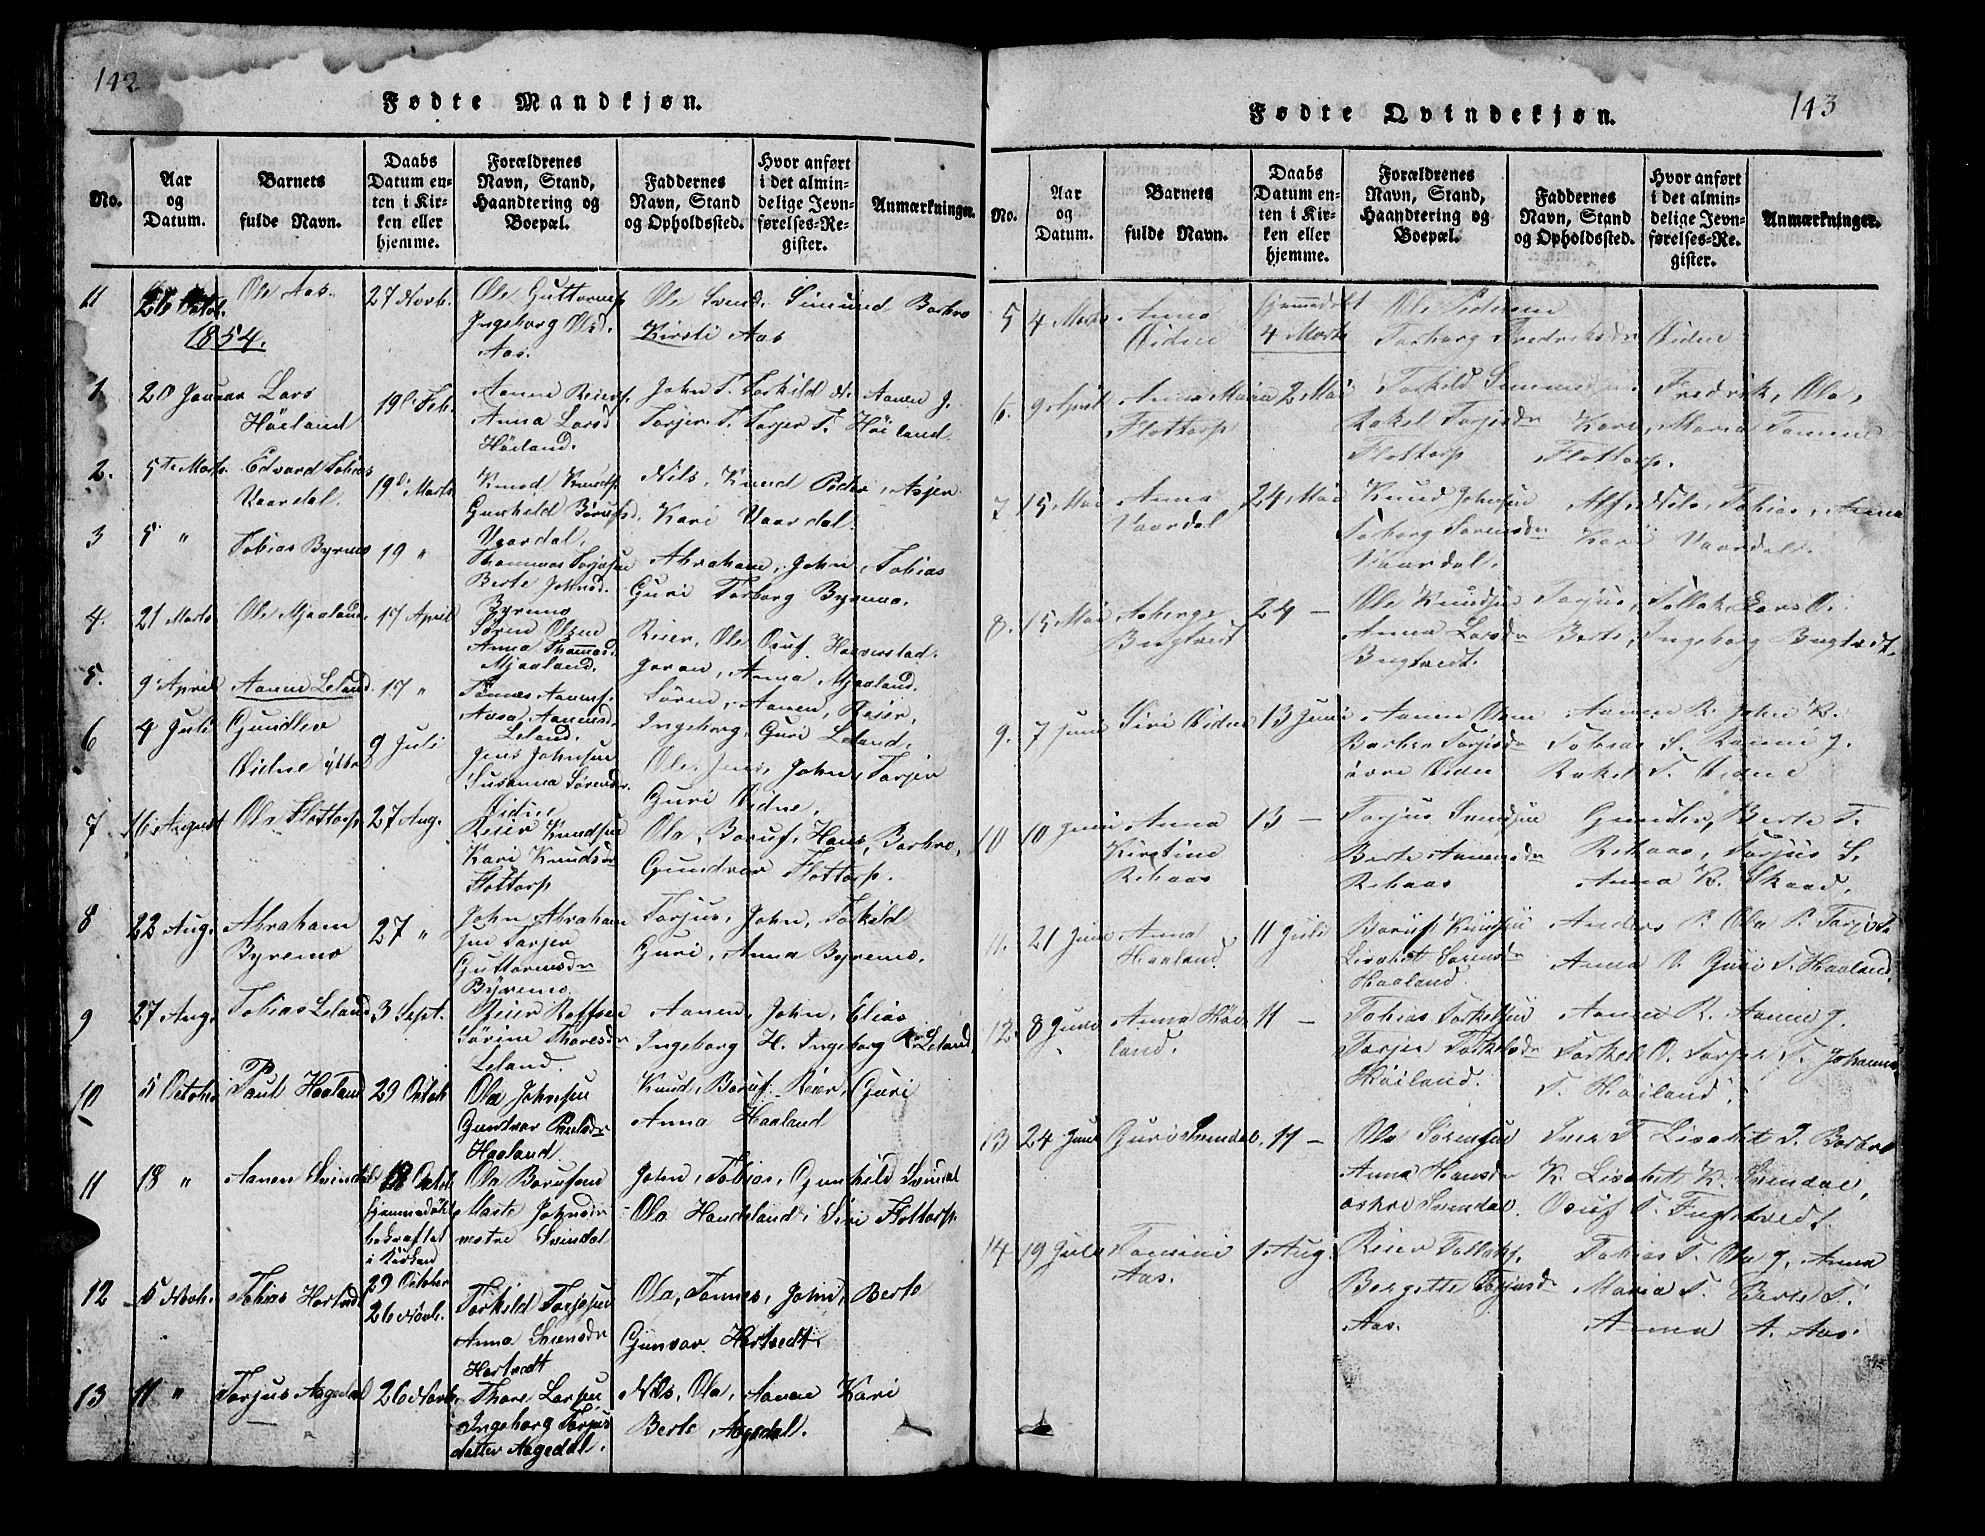 142
Fødte Mandkjøn.
No.
Aar
og
Datum.
Barnets
fulde Navn.
Daabs
Datum en-
ten i Kir-
ken eller
hjemme.
Forældrenes
Navn, Stand,
Haandtering og
Boepæl.
Faddernes
Navn, Stand
og Opholdssted.
Hvor anført
i det almin-
delige Jevn-
førelses-Re-
gister.
Anmærkninger.
11
26 Octob.
Ole Aas.
27 Novb.
Ole Guttormsen
Ingeborg Olsd.
Aas.
Ole Svend. Simund Barbro
Kirsti Aas
1854.
1
20 Januar
Lars
Höiland
19d Feb.
Aanen Reiers.
Anna Larsd
Höiland.
John T. Torkild N. Aanen J.
Torjer T. Torjer T. Höiland
2.
5te Marts
Edvard Tobias
Vaardal
19d Marts
Knud Knuds.
Gunhild Børufsd.
Vaardal.
Nils, Knud Peder, Asjer
Kari Vaardal.
3
5 "
Tobias Byremo
19 "
Thommas Torjusen
Berte Johnsd.
Byremo
Abraham, John, Tobias
Guri Torborg Byremo.
4.
21 Marts
Ole Mjaaland
17 April
Sören Olsen
Anna Thomasd.
Mjaaland.
Reier, Ole Osuf Haaverstad.
Joran, Anna, Mjaaland.
5.
9 April
Aanen Leland
17 "
Tönnes Aanens.
Aasa Aanensd.
Leland.
Sören, Aanen, Reier,
Ingeborg, Guri Leland.
6
4 Juli
Gundlev
Öidne ytre
9 Juli
Jens Johnsen
Susanna Sörensdr.
Öidne
Ole, Jens, John, Torjer
Guri Öidne.
7
16 August
Ole Flottorp
27 Aug.
Reier Knudsen
Kari Knudsdr
Flottorp
Ola, Boruf, Hans, Barbro,
Gundvor Flottorp.
8
22 Aug.
Abraham
Byremo
27 "
John Abraham
sen Torjer
Guttormsdr
Byremo.
Torjus, John, Torkild
Guri, Anna Byremo.
9
27 Aug.
Tobias Leland
3 Sept.
Reier Roffsen
Sörine Tharesdr
Leland.
Aanen, John, Elias
Ingeborg H. Ingeborg R. Leland
10
5 October
Paul Haaland
29 Octob
Ola Johnsen
Gundvor Paulsdr
Haaland
Knud, Boruf, Reier, Guri
Anna Haaland
11
18 "
Aanen Svindal
18 Octob
hjemmedöbt
bekræftet
i Kirken
29 October
Ola Borufsen
Marte Johnsdr
nestre Svindal
John, Tobias, Gunhild Svindal
Ola Handeland, Siri Flottorp
12
5 Novb.
Tobias Hortvedt
26 Novb.
Torkild Torjusen
Anna Svensdr
Hortvedt
Ola, Tønnes, John, Berte
Gunvor Hortvedt.
13
11 "
Torjus Aagedal
26 Novb.
Thore Larsen
Ingeborg Torjus
datter Aagedal.
Nils, Ola, Aanen Kari
Berte Aagedal.
143
Fødte Qvindekjøn.
No.
Aar
og
Datum.
Barnets
fulde Navn.
Daabs
Datum en-
ten i Kir-
ken eller
hjemme.
Forældrenes
Navn, Stand,
Haandtering og
Boepæl.
Faddernes
Navn, Stand
og Opholdssted.
Hvor anført
i det almin-
delige Jevn-
førelses-Re-
gister.
Anmærkninger.
5
4 Marts
Anna
Öidne
hjemmedöbt
4 Marts
Ole Pedersen
Torborg Fredriksdr Öidne
6.
9 April
Anna Maria
Flottorp
2 Mai
Torkild Simundsen
Rakel Torjisdr
Flottorp
Fredrik, Ola,
Kari, Maria Tomine
Flottorp.
7
15 Mai
Anna
Vaardal
24 Mai
Knud Johnsen
Torborg Sorensdr
Vaardal.
Alf, Nils, Tobias, Anna
Kari Vaardal.
8.
15 Mai
Asberge
Bugtvedt
24 —
Ole Knudsen
Anna Larsdr
Bugtvedt.
Torjus, Tollak, Lars O.
Berte, Ingeborg Bugtvedt.
9.
7 Juni
Siri Öidne
13 Juni
Aanen Olsen
Barbro Torjisdr
övre Öidne
Aanen R. John K.
Tobias S. Ranni J.
Rakel T. Öidne
10
10 Juni
Anna
Kirstine
Rehaas
13 —
Torjus Svendsen
Berte Aanensdr
Rehaas
Gunder, Berte T.
Rehaas, Torjus S.
Anna K. Skaad.
11.
21 Juni
Anna
Haaland.
11 Juli
Boruf Knudsen
Lisabet Sorensdr
Haaland.
Anders P. Ola P. Torjus
Anna O. Guri T. Haaland.
12.
8 Juni
Anna Höi
land.
11 —
Tobias Torkelsen
Torjer Torkelsdr
Höiland.
Aanen R. Aanen J.
Torkel O. Torjer T. Johanna
T. Höiland.
13
24 Juni
Guri Svendal.
11 —
Ola Sörensen
Anna Hansdr
østre Svendal.
Iver T. Lisabet T. Barbro
K. Lisabet K. Svendal,
Osuf T. Fuglstvedt.
14
19 Juli
Tomine
Aas.
1 Aug.
Reier Tollaks.
Bergette Torjusdr
Aas.
Tobias T. Ola J. Anna
Maria T. Berte T.
Anna A. Aas.